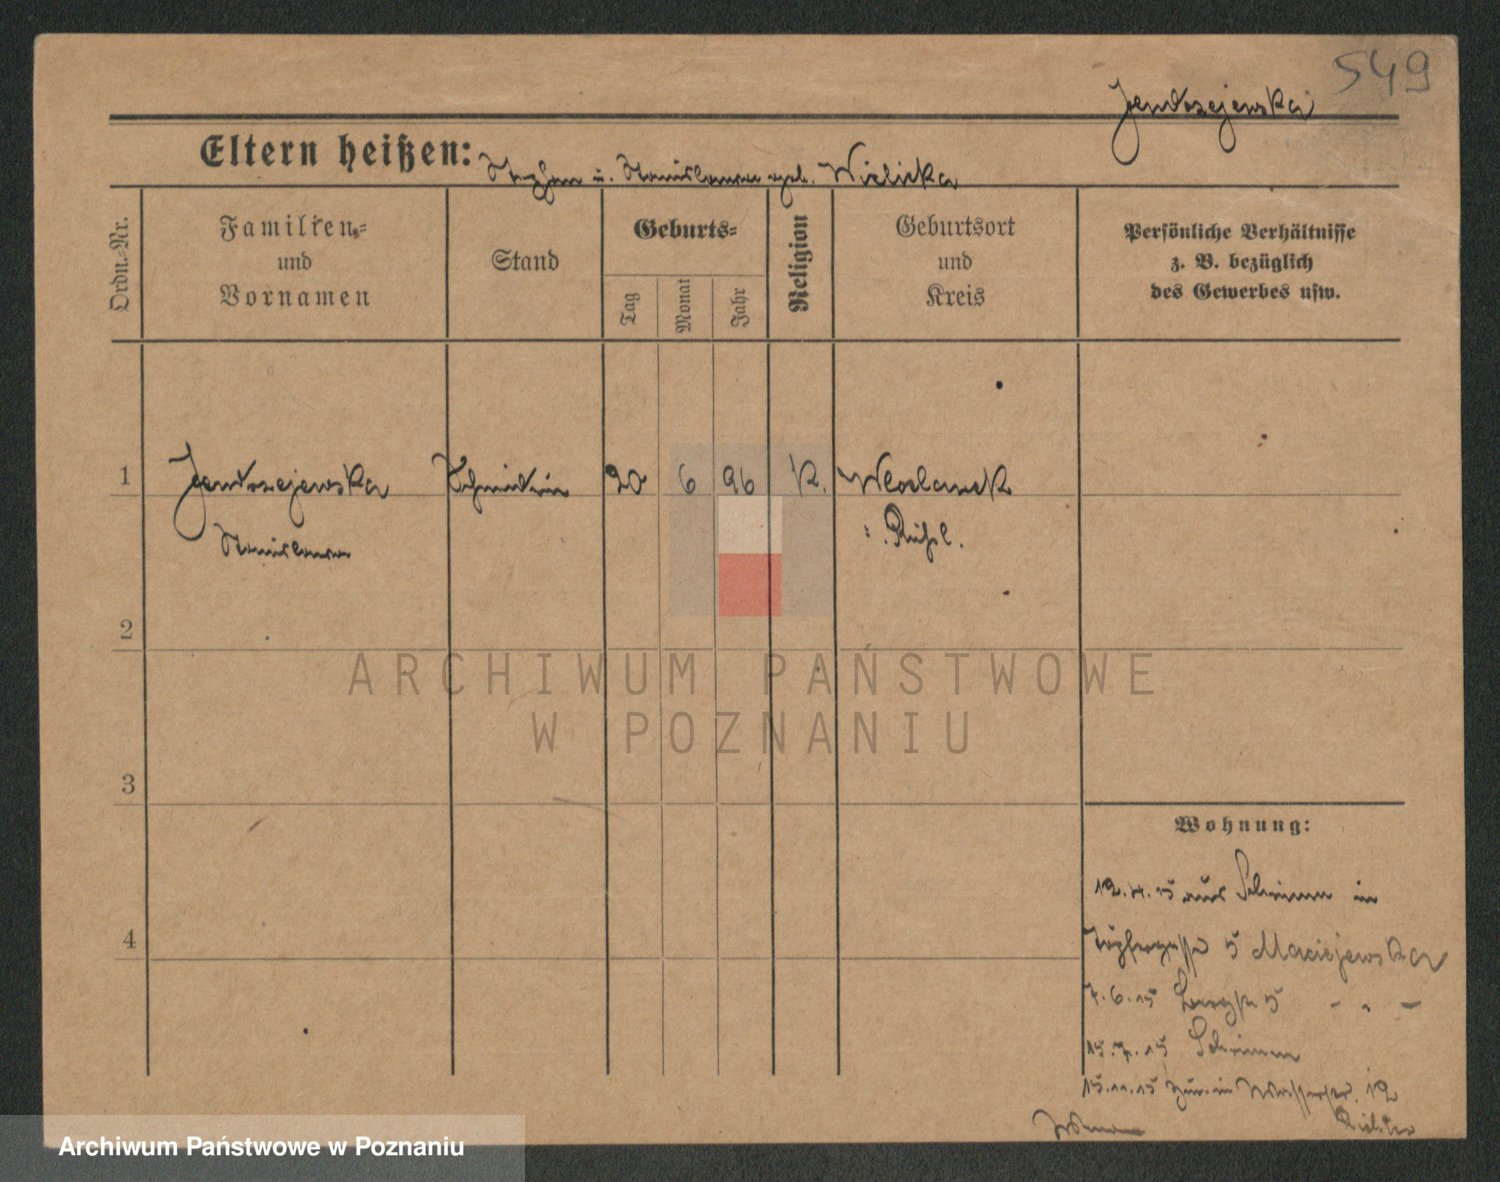 549
Jendszejewska
Eltern heißen: Stephan u. Stanislawa geb. Wielicka
Ordn.-Nr.
Familien-
und
Vornamen
Stand
Geburts-
Tag
Monat
Jahr
Religion
Geburtsort
und
Kreis
Persönliche Verhältnisse
z. B. bezüglich
des Gewerbes usw.
1
Jendszejewska
20 6 96 K. Wloclaweck
Stanislawa
Rußl.
2
ARCHIWUM PAŃSTWOWE
W POZNANIU
3
Wohnung:
12.4.15 aus Schrimm in
4
5 Maciejewska
7.6.15 5 - " -
15.7.15 Schrimm
15.11.15 zur. in Wasserstr. 12
Archiwum Państwowe w Poznaniu